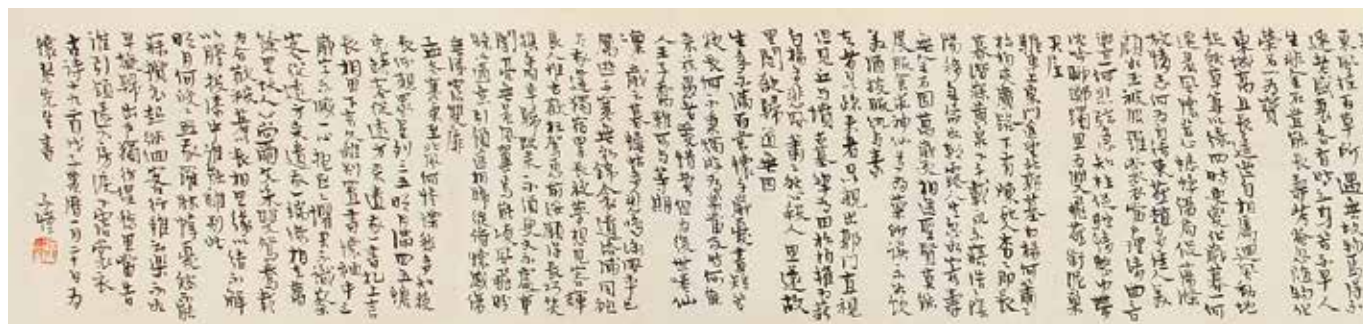 百草所遇無故物焉得不
速老盛衰各有時立身苦不早人
生非金石豈能長壽考奄忽隨物化
榮名以為寶
東城高且長逶迤自相屬迴風動地
起秋草萋以綠四時更變化歲暮一何
速晨風懷苦心蟋蟀傷局促蕩滌
放情志何為自結束燕趙多佳人美
顏如玉被服羅裳衣當戶理清曲音
響一何悲絃急知柱促馳情整中帶
沈吟聊躑躅思為雙飛燕銜泥巢
君屋
驅車上東門遙望北郭墓白楊何蕭
松柏夾廣路下有陳死人杳杳即長
暮潛寐黃泉下千載永不寤浩浩陰
陽移年命如朝露人生忽如寄壽
無金石固萬歲更相送賢聖莫能
度服食求神仙多為藥所誤不如飲
美酒被服紈與素
去者日以疎來者日以親出郭門直視
但見丘與墳古墓犁為田松柏摧為薪
白楊多悲風蕭蕭愁殺人思還故
里閭欲歸道無因
生年不滿百常懷千歲憂晝短苦
夜長何不秉燭遊為樂當及時何能
來茲愚者愛惜費但為後世嗤仙
人王子喬難可與等期
凜歲云暮螻蛄夕鳴悲涼風率已
厲遊子寒無衣錦衾遺洛浦同袍
與我違獨宿累長夜夢想見容輝
良人惟古歡枉駕惠前綏願得長巧笑
攜手同車歸既來不須臾又不處重
闈亮無晨風翼焉能凌風飛眄
睞以適意引領遙相睎徙倚懷感傷
垂涕沾雙扉
孟冬寒氣至北風何慘慄愁多知夜
長仰觀眾星列三五明月滿四五蟾
兔缺客從遠方來遺我一書札上言
長相思下言久離別置書懷袖中三
歲字不滅一心抱區區懼君不識察
客從遠方來遺我一端綺相去萬
餘里故人心尚爾文采雙鴛鴦裁
為合歡被著以長相思緣以結不解
以膠投漆中誰能別離此
明月何皎皎照我羅床幃憂愁不能
寐攬衣起徘徊客行雖云樂不如
早旋歸出戶獨彷徨愁思當告
誰引領還入房淚下霑裳衣
古詩十九首 月二十日為
懷 先生書